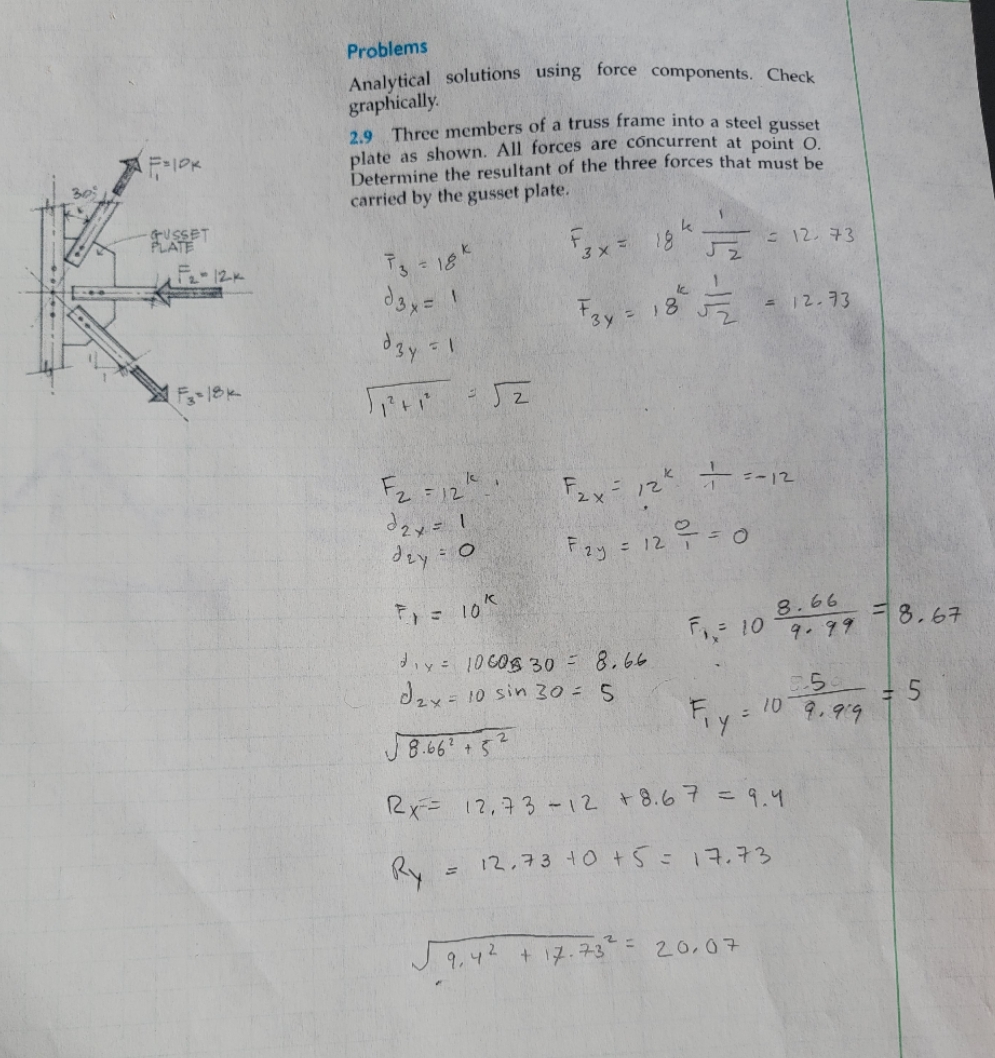 Problems
Analytical solutions using force components. Check
graphically.
2.9 Three members of a truss frame into a steel gusset
plate as shown. All forces are concurrent at point O.
Determine the resultant of the three forces that must be
carried by the gusset plate.
F₁=10K
30°
GUSSET
PLATE
F₂=12K
1
1
F₃=18K
F₃ = 18ᵏ
d₃ₓ = 1
d₃y = 1
√1²+1² = √2
F₃ₓ = 18ᵏ 1/√2 = 12.73
F₃y = 18ᵏ 1/√2 = 12.73
F₂ = 12ᵏ
d₂ₓ = 1
d₂y = 0
F₂ₓ = 12ᵏ 1/1 = -12
F₂y = 12 0/1 = 0
F₁ = 10ᴷ
d₁ₓ = 10 cos 30 = 8.66
d₂ₓ = 10 sin 30 = 5
√8.66² + 5²
F₁ₓ = 10 8.66/9.99 = 8.67
F₁y = 10 5/9.99 = 5
Rx = 12.73 - 12 + 8.67 = 9.4
Ry = 12.73 + 0 + 5 = 17.73
√9.4² + 17.73² = 20.07